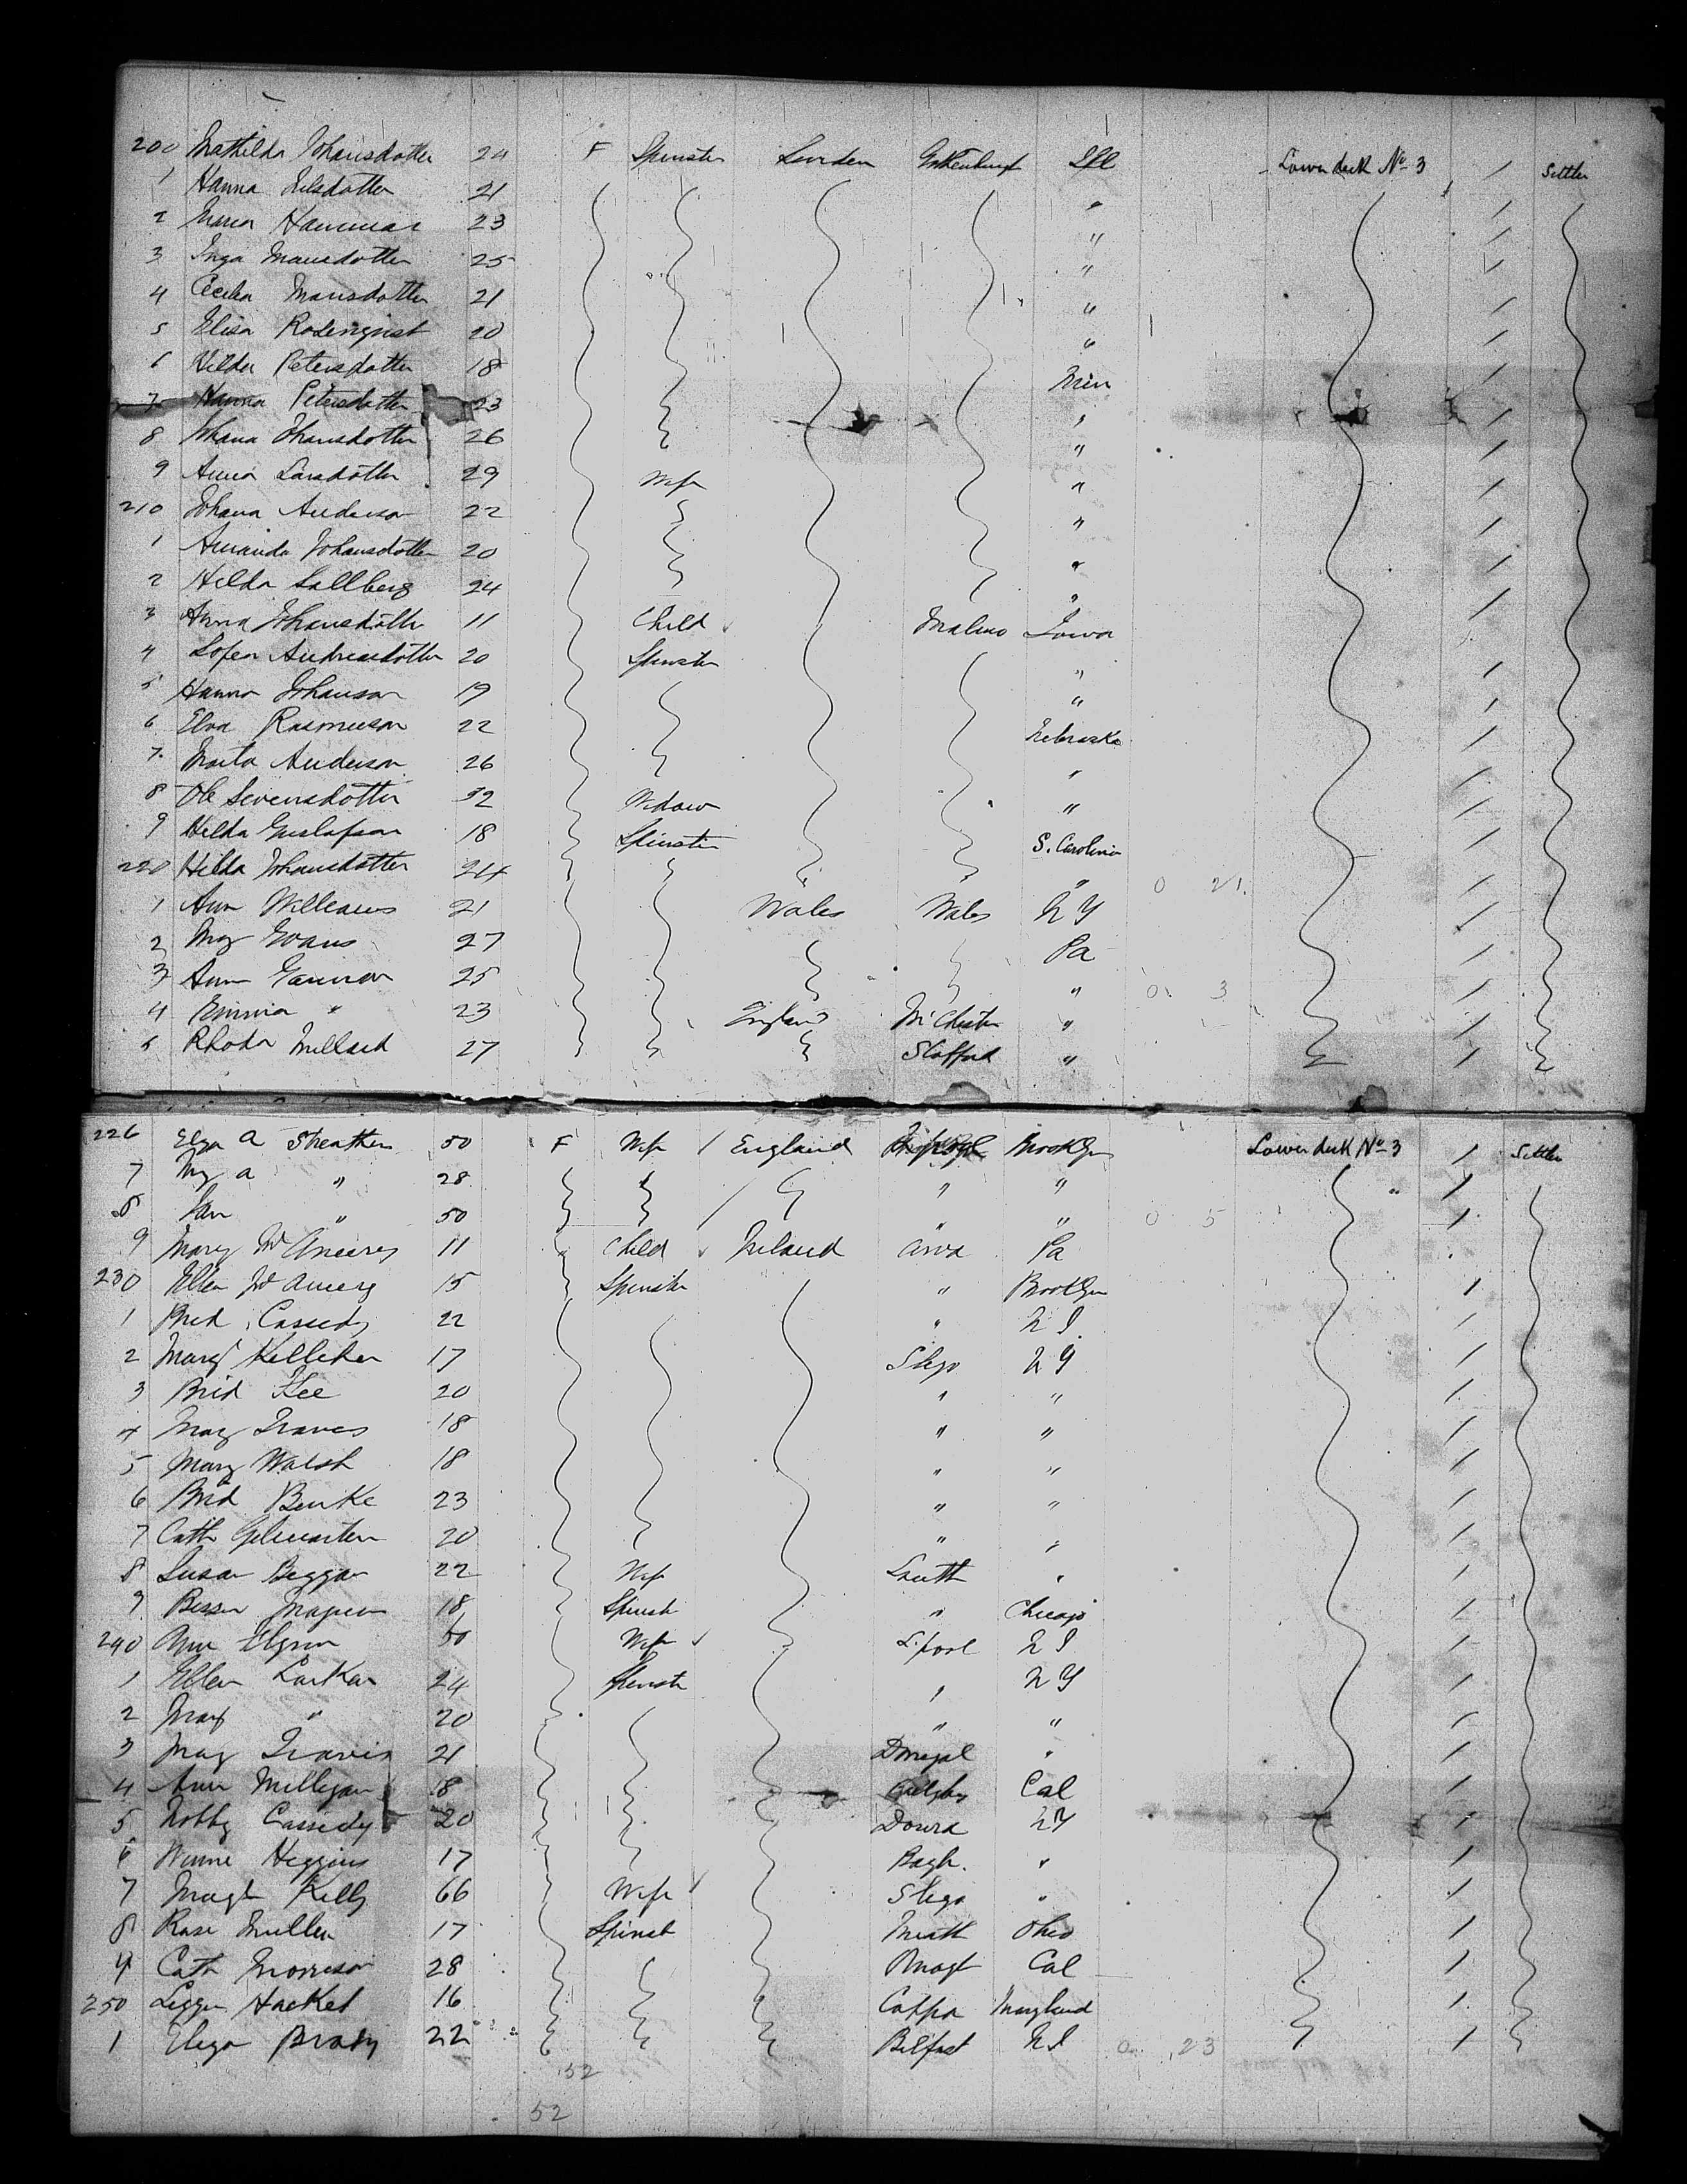 200 Mathilda Johansdotter 24 F Spinster Sweden Gothenburgh Ill Lower deck No 3 / Settler
1 Hanna Nilsdotter 21 "
2 Maria Hammar 23 "
3 Inga Mansdotter 25 "
4 Cecilia Mansdotter 21 "
5 Elisa Rosenqvist 20 "
6 Hilda Petersdotter 18 Min
7 Hanna Petersdotter 23 "
8 Johana Johansdotter 26 "
9 Anna Larsdotter 29 Wife "
210 Johana Anderson 22 "
1 Amanda Johansdotter 20 "
2 Hilda Sallberg 24 "
3 Anna Johansdotter 11 Child Malmo Iowa
4 Sofia Andreasdotter 20 Spinster "
5 Hanna Johanson 19 "
6 Elna Rasmuson 22 Nebraska
7 Marta Anderson 26 "
8 Ole Sevensdotter 32 Widow "
9 Hilda Gustafson 18 Spinster S. Carolina
220 Hilda Johansdotter 24 " 0 21
1 Ann Williams 21 Wales Wales N Y
2 Mary Evans 27 Pa
3 Ann 25 " 0 3
4 Emma " 23 England M'Chester "
5 Rhoda Millard 27 Stafford "
226 Eliza A Sheather 50 F Wife / England Brooklyn Lower deck No 3 / Settler
7 Mg A " 28 " "
8 " 50 " " 0 5
9 Mary 11 Child Ireland Arva Pa
230 Ellen 15 Spinster " Brooklyn
1 Brid Cassidy 22 " N J
2 Margt Kelliher 17 Sligo N Y
3 Brid Kee 20 " "
4 Mary Travers 18 " "
5 Mary Walsh 18 " "
6 Brid Burke 23 " "
7 Cath Gilmartin 20 " "
8 Susan Beggan 22 Wife Louth "
9 Bessie 18 Spinst " Chicago
240 Ann 50 Wife L.pool N J
1 Ellen Larkan 24 Spinst " N Y
2 Mary " 20 " "
3 Mary Travis 21 Donegal "
4 Ann Milligan 18 Cal
5 Nobby Cassidy 20 Dowra N Y
6 Winne Higgins 17 Bagh. "
7 Magt Kelly 66 Wife Sligo "
8 Rose Mullen 17 Spinst Meath Ohio
9 Cath Morrison 28 Cal
250 Lizzie Hacket 16 Cappa Maryland
1 Eliza Brady 22 Belfast N J 0 23
52
52